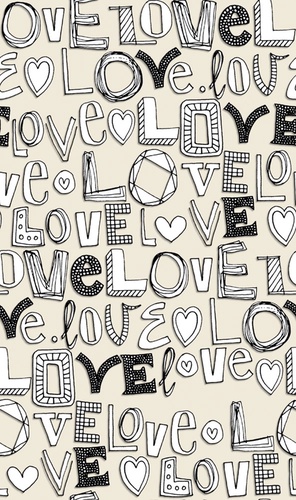 OVE LOVe L
E ♡ LOVe. lOVE
E LOVe ♡ LOVE
ve • ♡ LOVE LO
LOVE L ♡ VE ♡
OVe LOVE L
Ve. lOVE ♡ LO
LOVE l ♡ ove ♡
OVE LOVe ♡ LO
♡ VE ♡ LOVE L